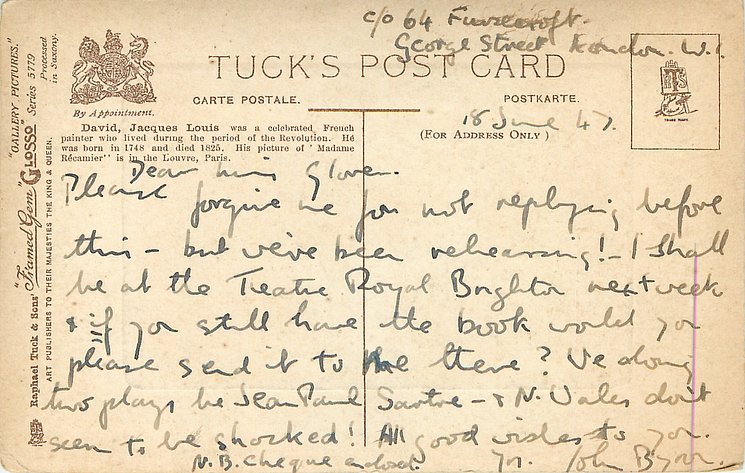 c/o 64 Furzecroft.
George Street London. W.1.
TUCK'S POST CARD
By Appointment.
CARTE POSTALE.
POSTKARTE.
18 June 47.
(FOR ADDRESS ONLY)
TRADE MARK.
"GALLERY PICTURES."
Series 5779
Processed in Saxony.
Raphael Tuck & Sons' "Framed Gem" GLOSSO
ART PUBLISHERS TO THEIR MAJESTIES THE KING & QUEEN.
David, Jacques Louis was a celebrated French
painter who lived during the period of the Revolution. He
was born in 1748 and died 1825. His picture of "Madame
Récamier" is in the Louvre, Paris.
Dear Miss Glover.
Please forgive me for not replying before
this – but we've been rehearsing! – I shall
be at the Teatre Royal Brighton next week
& if you still have the book would you
please send it to me there? We doing
two plays be Jean Paul Sartre – & N. Wales don't
seem to be shocked! All good wishes to you.
N.B. Cheque enclosed. Yrs. John Byron.